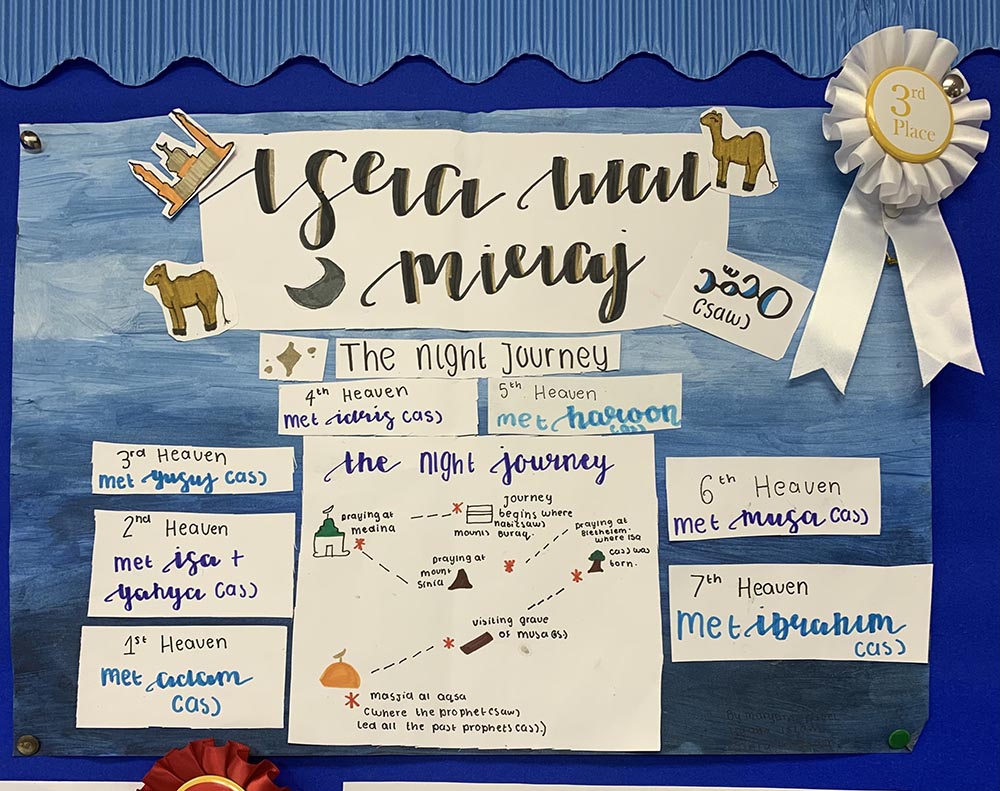 3rd
Place
isra wal
miraj
(saw)
The night Journey
4th Heaven
met idris (as)
5th Heaven
met haroon
(as)
3rd Heaven
met yusuf (as)
2nd Heaven
met isa +
yahya (as)
1st Heaven
met adam
(as)
the night journey
praying at
medina
journey
begins where
nabi(saw)
mounts
buraq.
praying at
mount
Sinia
praying at
Blethelem-
where isa
(as) was
born.
visiting grave
of musa(as)
masjid al aqsa
(where the prophet(saw)
led all the past prophets(as).)
6th Heaven
met musa (as)
7th Heaven
met ibrahim
(as)